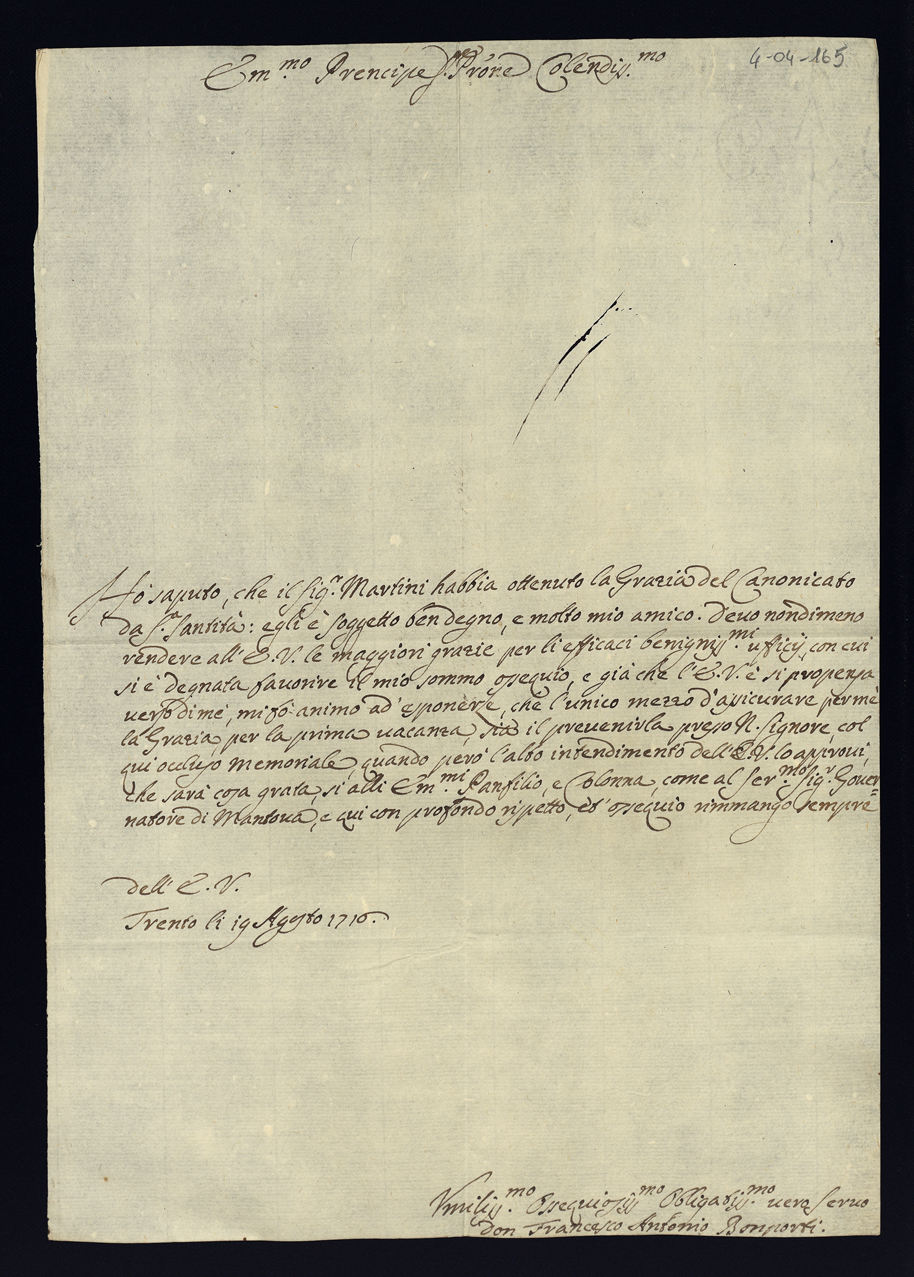 4-04-165
Em.mo Prencipe S.r Prōne Colendiss.mo
Ho saputo, che il Sig.r Martini habbia ottenuto la Grazia del Canonicato
da S.a Santità: egli è soggetto ben degno, e molto mio amico. Devo nondimeno
rendere all' E. V. le maggiori grazie per li efficaci benigniss.mi ufficij, con cui
si è degnata favorire il mio sommo ossequio, e già che l'E.V. è si propensa
verso di me, mi fò animo ad esponerle, che l'unico mezzo d'assicurare per mè
la Grazia, per la prima vacanza, sia il prevenirla presso N. Signore, col
qui occluso Memoriale, quando però l'alto intendimento dell'E.V. lo approvi,
che sarà cosa grata, si alli Em.mi Panfilio, e Colonna, come al Ser.mo Sig.r Gover=
natore di Mantova, e qui con profondo rispetto, et ossequio rimmango sempre
dell' E. V.
Trento li 19 Agosto 1716.
Vmiliss.mo Ossequiosiss.mo Obligatiss.mo vero servo
don Francesco Antonio Bonporti.